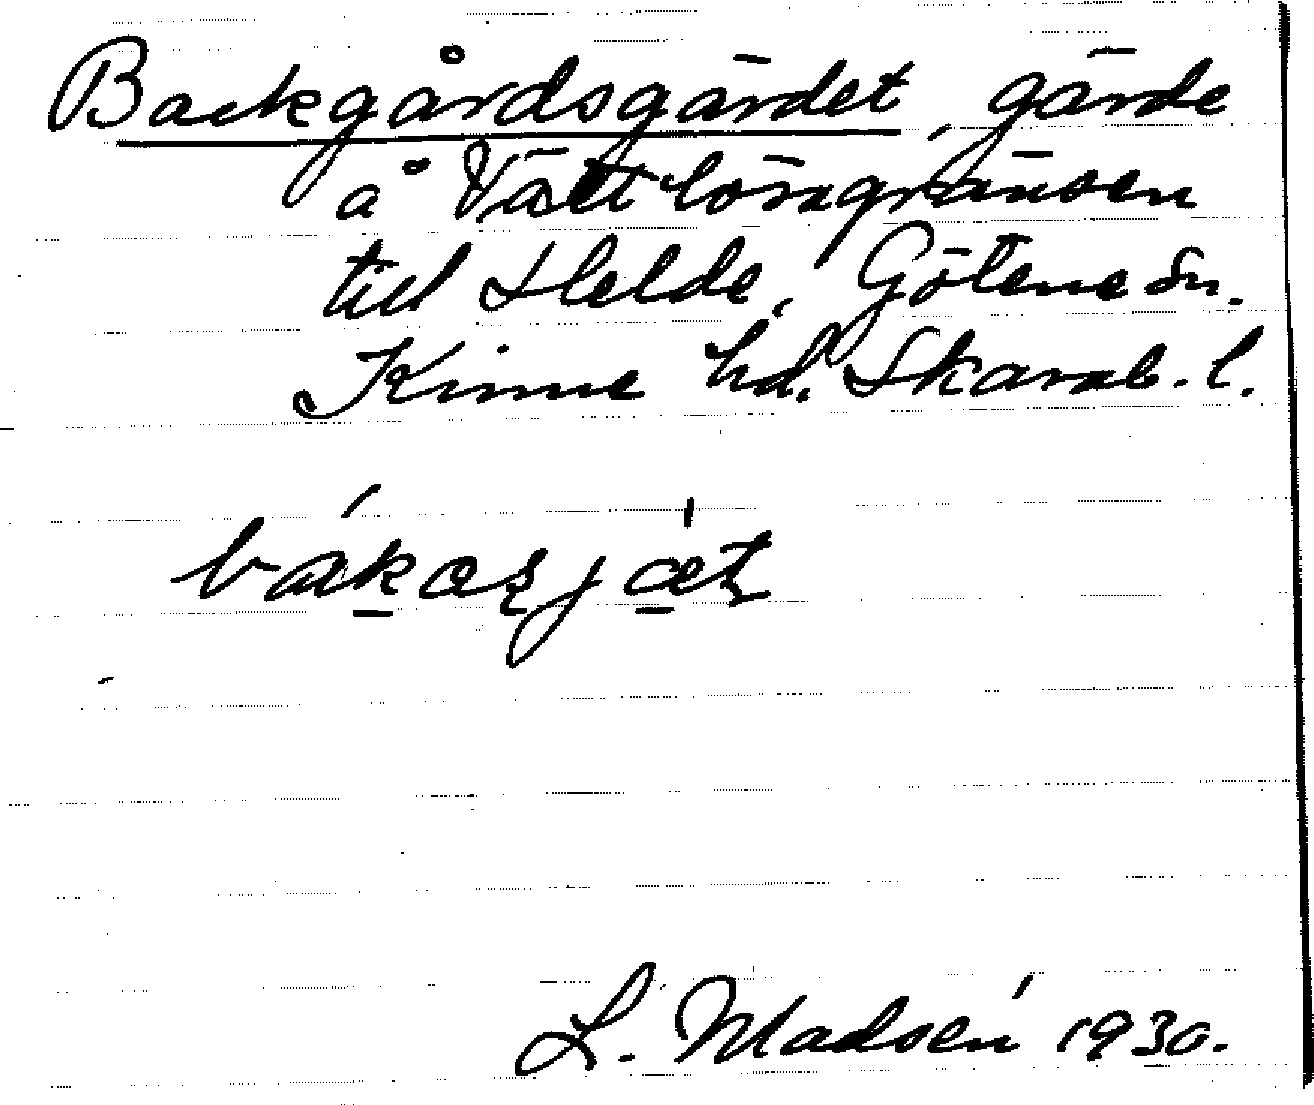 Backgårdsgärdet, gärde
å Vättlösagränsen
till Helde, Götene sn.
Kinne hd. Skarab. l.
L. Madsén 1930.